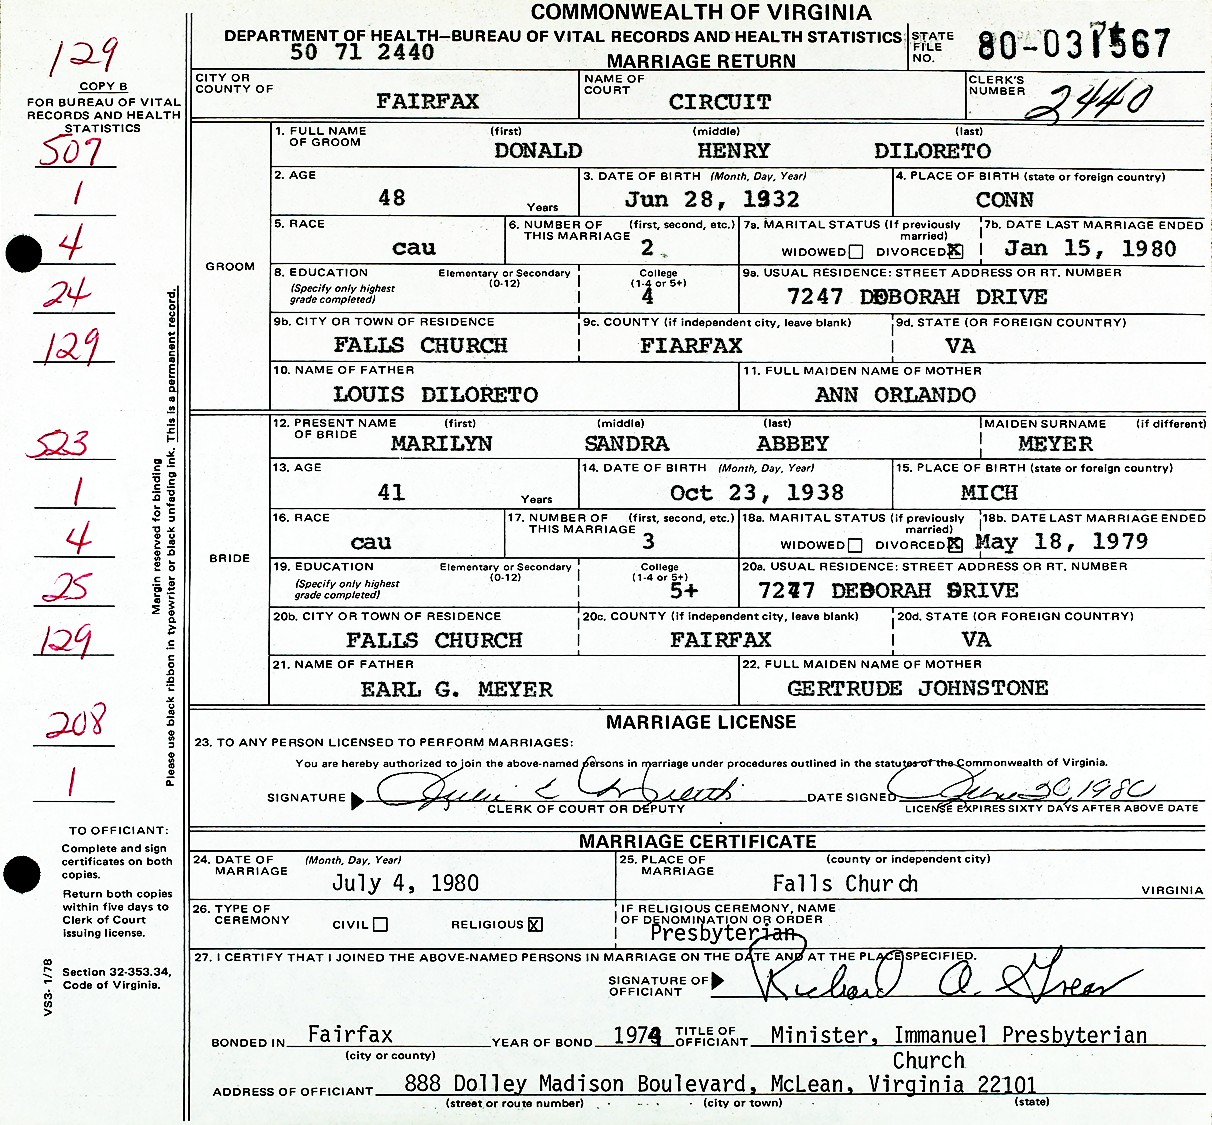 COMMONWEALTH OF VIRGINIA
DEPARTMENT OF HEALTH—BUREAU OF VITAL RECORDS AND HEALTH STATISTICS
50 71 2440
MARRIAGE RETURN
STATE FILE NO. 80-031567
129
COPY B
FOR BUREAU OF VITAL
RECORDS AND HEALTH
STATISTICS
CITY OR COUNTY OF FAIRFAX
NAME OF COURT CIRCUIT
CLERK'S NUMBER 2440
507
1
4
24
129
523
1
4
25
129
208
1
GROOM
1. FULL NAME OF GROOM (first) (middle) (last)
DONALD HENRY DILORETO
2. AGE 48 Years
3. DATE OF BIRTH (Month, Day, Year) Jun 28, 1932
4. PLACE OF BIRTH (state or foreign country) CONN
5. RACE cau
6. NUMBER OF THIS MARRIAGE (first, second, etc.) 2
7a. MARITAL STATUS (If previously married) WIDOWED DIVORCED X
7b. DATE LAST MARRIAGE ENDED Jan 15, 1980
8. EDUCATION (Specify only highest grade completed) Elementary or Secondary (0-12) College (1-4 or 5+) 4
9a. USUAL RESIDENCE: STREET ADDRESS OR RT. NUMBER 7247 DEBORAH DRIVE
9b. CITY OR TOWN OF RESIDENCE FALLS CHURCH
9c. COUNTY (if independent city, leave blank) FIARFAX
9d. STATE (OR FOREIGN COUNTRY) VA
10. NAME OF FATHER LOUIS DILORETO
11. FULL MAIDEN NAME OF MOTHER ANN ORLANDO
BRIDE
12. PRESENT NAME OF BRIDE (first) (middle) (last) MAIDEN SURNAME (if different)
MARILYN SANDRA ABBEY MEYER
13. AGE 41 Years
14. DATE OF BIRTH (Month, Day, Year) Oct 23, 1938
15. PLACE OF BIRTH (state or foreign country) MICH
16. RACE cau
17. NUMBER OF THIS MARRIAGE (first, second, etc.) 3
18a. MARITAL STATUS (If previously married) WIDOWED DIVORCED X
18b. DATE LAST MARRIAGE ENDED May 18, 1979
19. EDUCATION (Specify only highest grade completed) Elementary or Secondary (0-12) College (1-4 or 5+) 5+
20a. USUAL RESIDENCE: STREET ADDRESS OR RT. NUMBER 7247 DEBORAH DRIVE
20b. CITY OR TOWN OF RESIDENCE FALLS CHURCH
20c. COUNTY (if independent city, leave blank) FAIRFAX
20d. STATE (OR FOREIGN COUNTRY) VA
21. NAME OF FATHER EARL G. MEYER
22. FULL MAIDEN NAME OF MOTHER GERTRUDE JOHNSTONE
Margin reserved for binding
Please use black ribbon in typewriter or black unfading ink. This is a permanent record.
MARRIAGE LICENSE
23. TO ANY PERSON LICENSED TO PERFORM MARRIAGES:
You are hereby authorized to join the above-named persons in marriage under procedures outlined in the statutes of the Commonwealth of Virginia.
SIGNATURE
CLERK OF COURT OR DEPUTY
DATE SIGNED June 30, 1980
LICENSE EXPIRES SIXTY DAYS AFTER ABOVE DATE
TO OFFICIANT:
Complete and sign
certificates on both
copies.
Return both copies
within five days to
Clerk of Court
issuing license.
Section 32-353.34,
Code of Virginia.
VS3- 1/78
MARRIAGE CERTIFICATE
24. DATE OF MARRIAGE (Month, Day, Year) July 4, 1980
25. PLACE OF MARRIAGE (county or independent city) Falls Church VIRGINIA
26. TYPE OF CEREMONY CIVIL RELIGIOUS X
IF RELIGIOUS CEREMONY, NAME OF DENOMINATION OR ORDER Presbyterian
27. I CERTIFY THAT I JOINED THE ABOVE-NAMED PERSONS IN MARRIAGE ON THE DATE AND AT THE PLACE SPECIFIED.
SIGNATURE OF OFFICIANT Richard A.
BONDED IN Fairfax (city or county)
YEAR OF BOND 1974
TITLE OF OFFICIANT Minister, Immanuel Presbyterian
Church
ADDRESS OF OFFICIANT 888 Dolley Madison Boulevard, McLean, Virginia 22101
(street or route number) (city or town) (state)